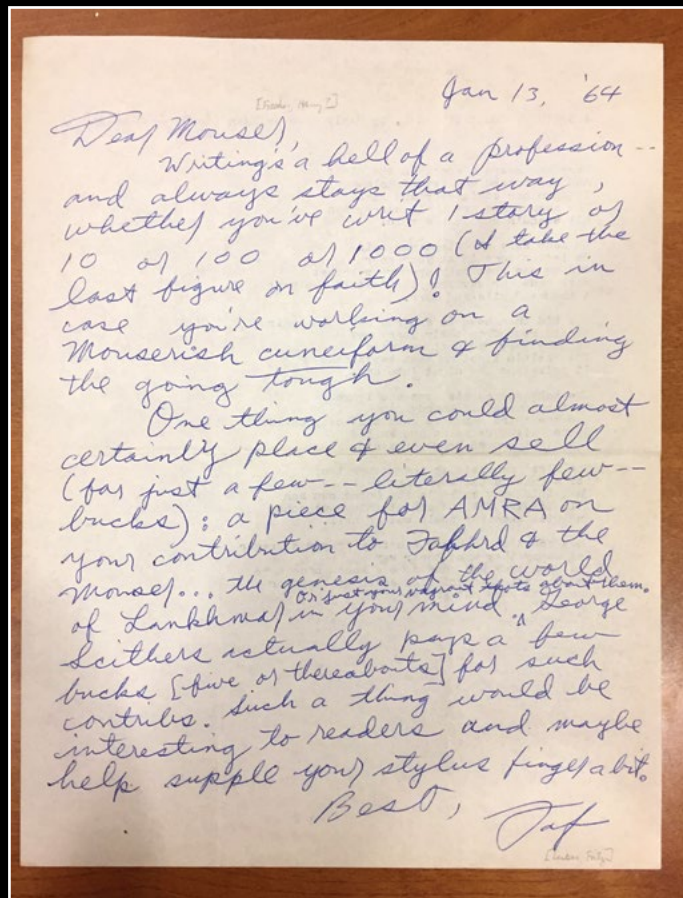 Jan 13, '64
Dear Mouser,
Writing's a hell of a profession --
and always stays that way,
whether you've writ 1 story or
10 or 100 or 1000 (I take the
last figure on faith)! This in
case you're working on a
Mouserish cuneiform & finding
the going tough.
One thing you could almost
certainly place & even sell
(for just a few -- literally few --
bucks): a piece for AMRA on
your contribution to Fafhrd & the
Mouser... the genesis of the world
Or just your vagrant thots about them.
of Lankhmar in your mind. ^ George
Scithers actually pays a few
bucks [five or thereabouts] for such
contribs. Such a thing would be
interesting to readers and maybe
help supple your stylus finger a bit.
Best,
Faf